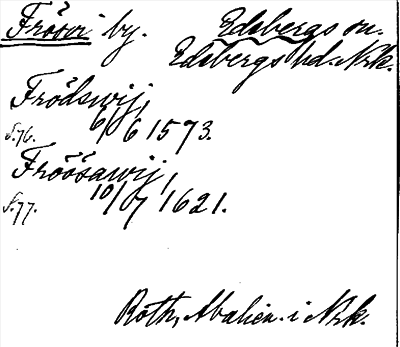 Frösvi by. Edsbergs sn.
Edsbergs hd. Nrk.
Frödswij,
s.76. 6/6 1573.
Fröösawij,
s.77. 10/7 1621.
Roth, Abalien. i Nrk.